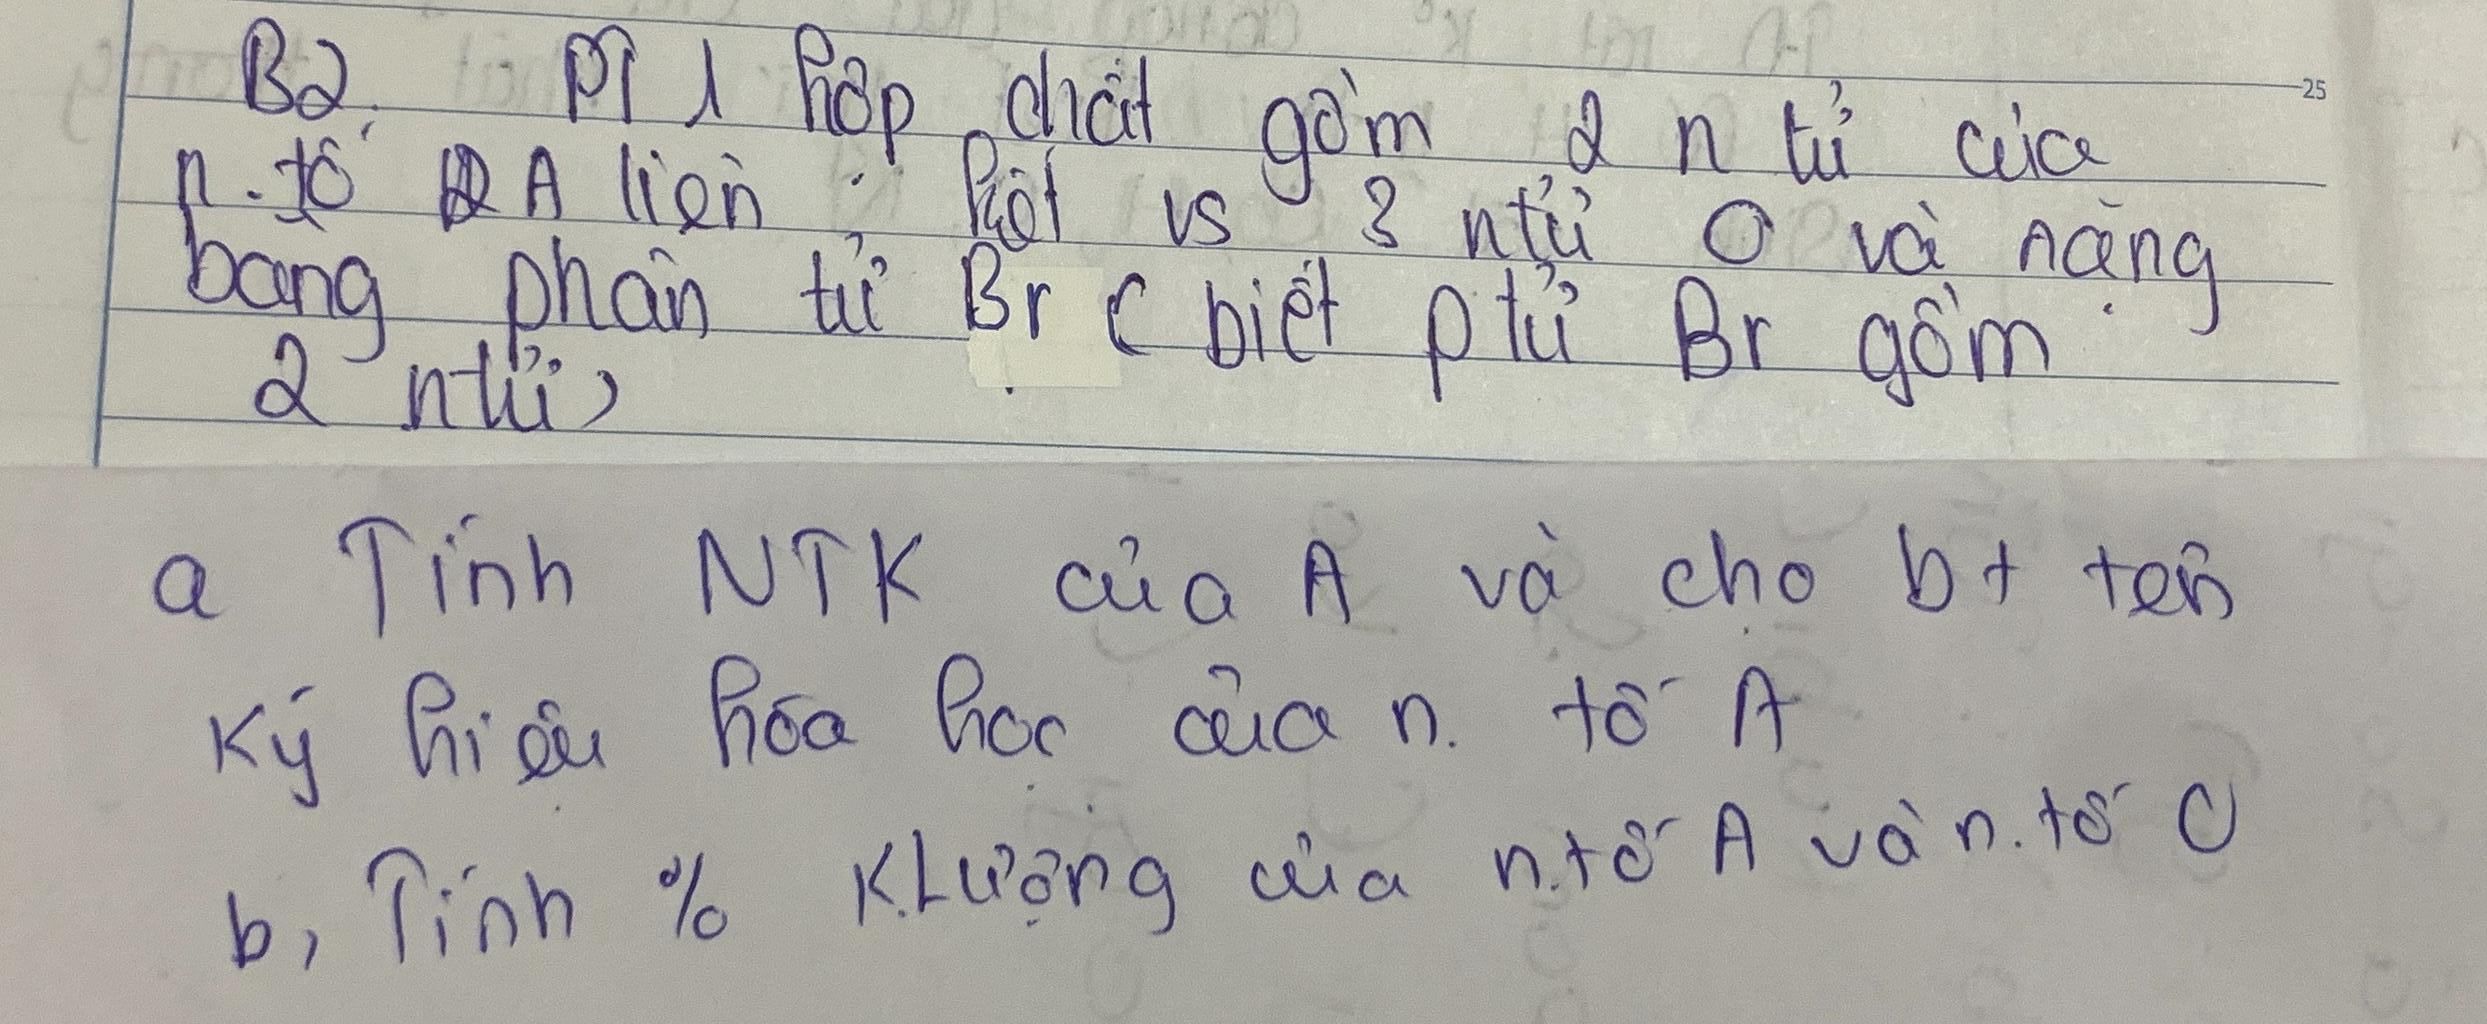 B2. PT 1 hợp chất gồm 2 n tử của
n. tố A liên kết vs 3 ntử O và nặng
bằng phân tử Br ( biết p tử Br gồm
2 ntử)
25
a Tính NTK của A và cho bt tên
Ký hiệu hóa học của n. tố A
b, Tính % K.Lượng của n.tố A và n. tố O